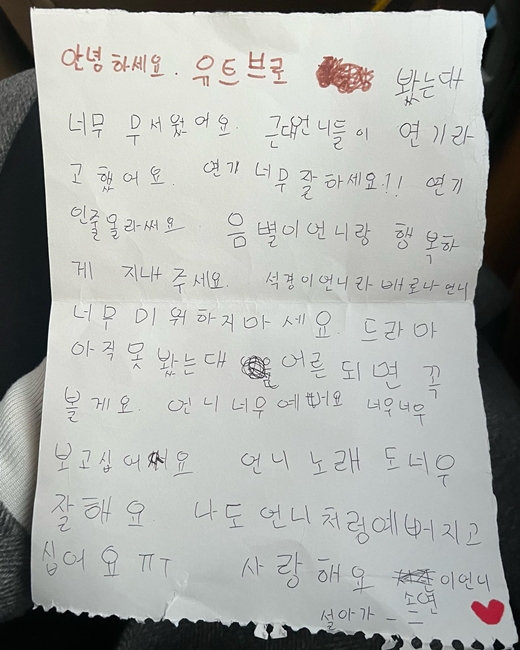 안녕하세요. 우트브로 봤는대
너무 무서웠어요. 근대언니들이 연기라
고 했어요. 연기 너무잘하세요!! 연기
인줄올라써요 음 별이언니랑 행복하
게 지내주세요. 석경이언니라 배로나 언니
너무 미워하지마세요. 드라마
아직못봤는대 어른되면 꼭
볼게요. 언니너무예뻐요 너우너우
보고십어요 언니 노래 도너우
잘해요. 나도 언니처렁예뻐지고
십어요ㅠㅜ 사랑해요 이언니
소연
설아가 -